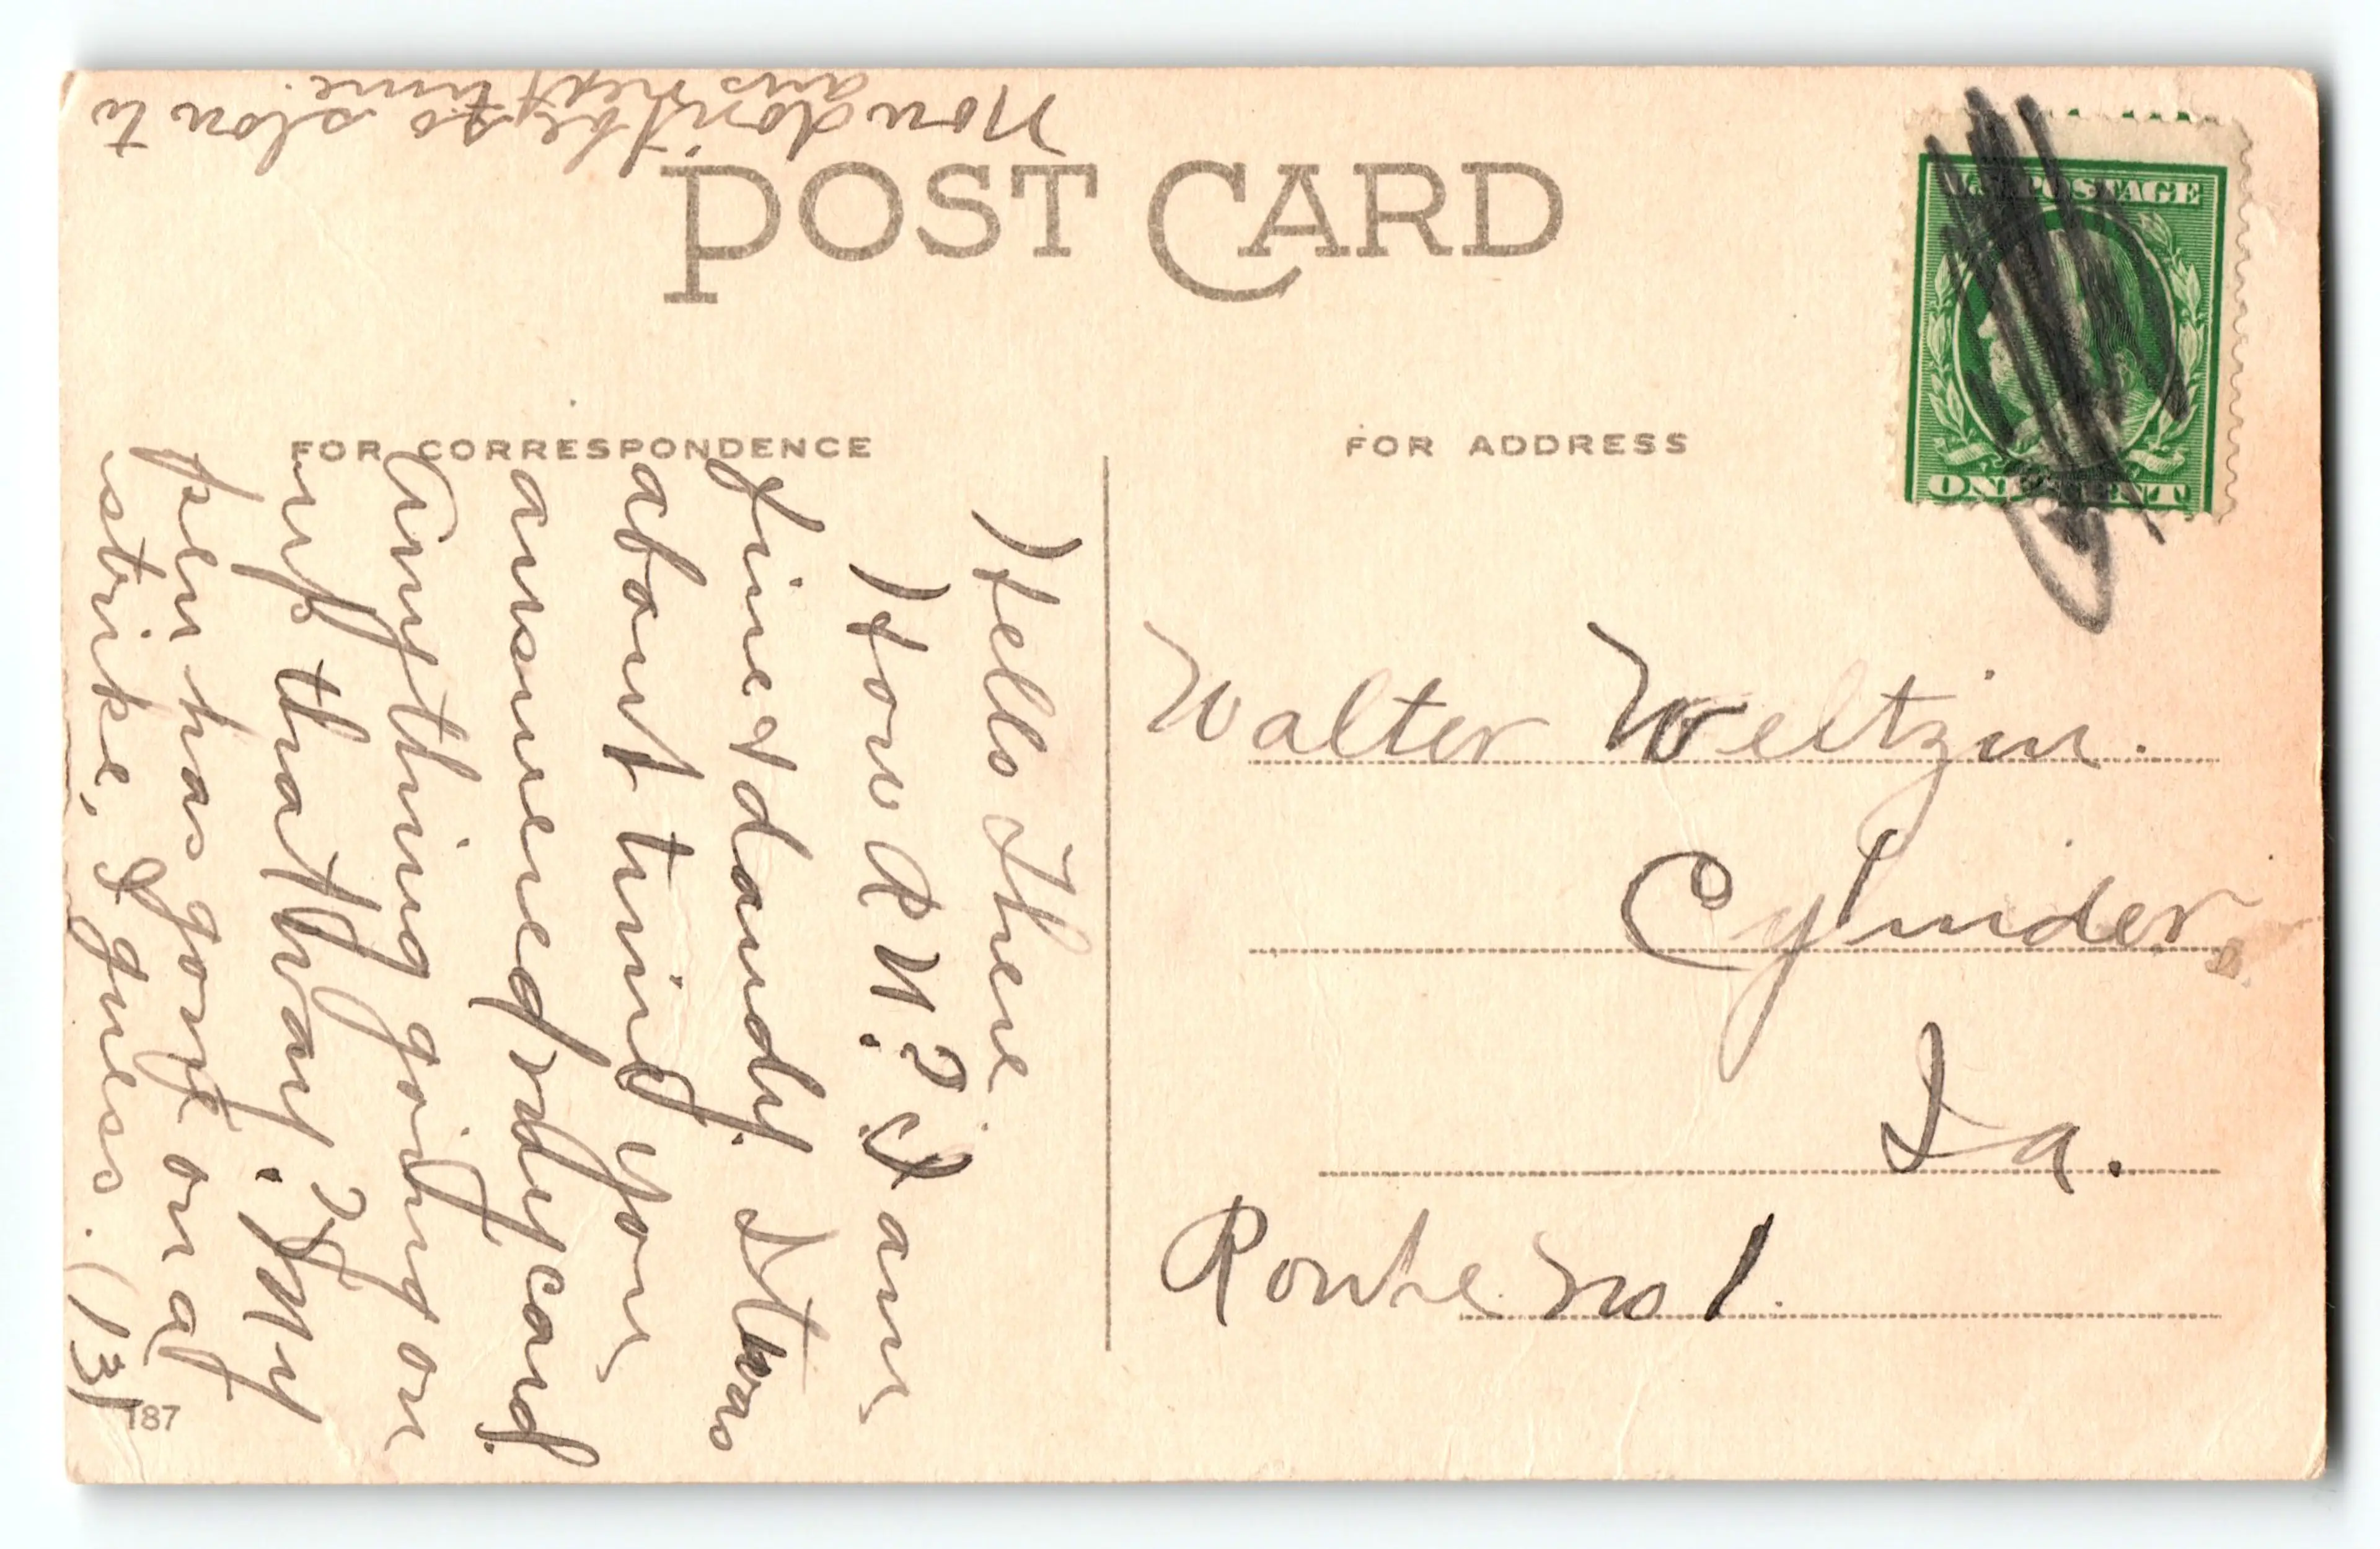 POST CARD
FOR CORRESPONDENCE
FOR ADDRESS
U.S. POSTAGE
ONE CENT
Hello There
How R U.? I am
fine & dandy. It was
about time you
answered my card.
Anything going on
up that way.? My
pen has gone on a
strike, I guess. (13)
Now don't be so slow to
ans next time.
Walter Weltzin.
Cylinder,
Ia.
Route no 1.
187